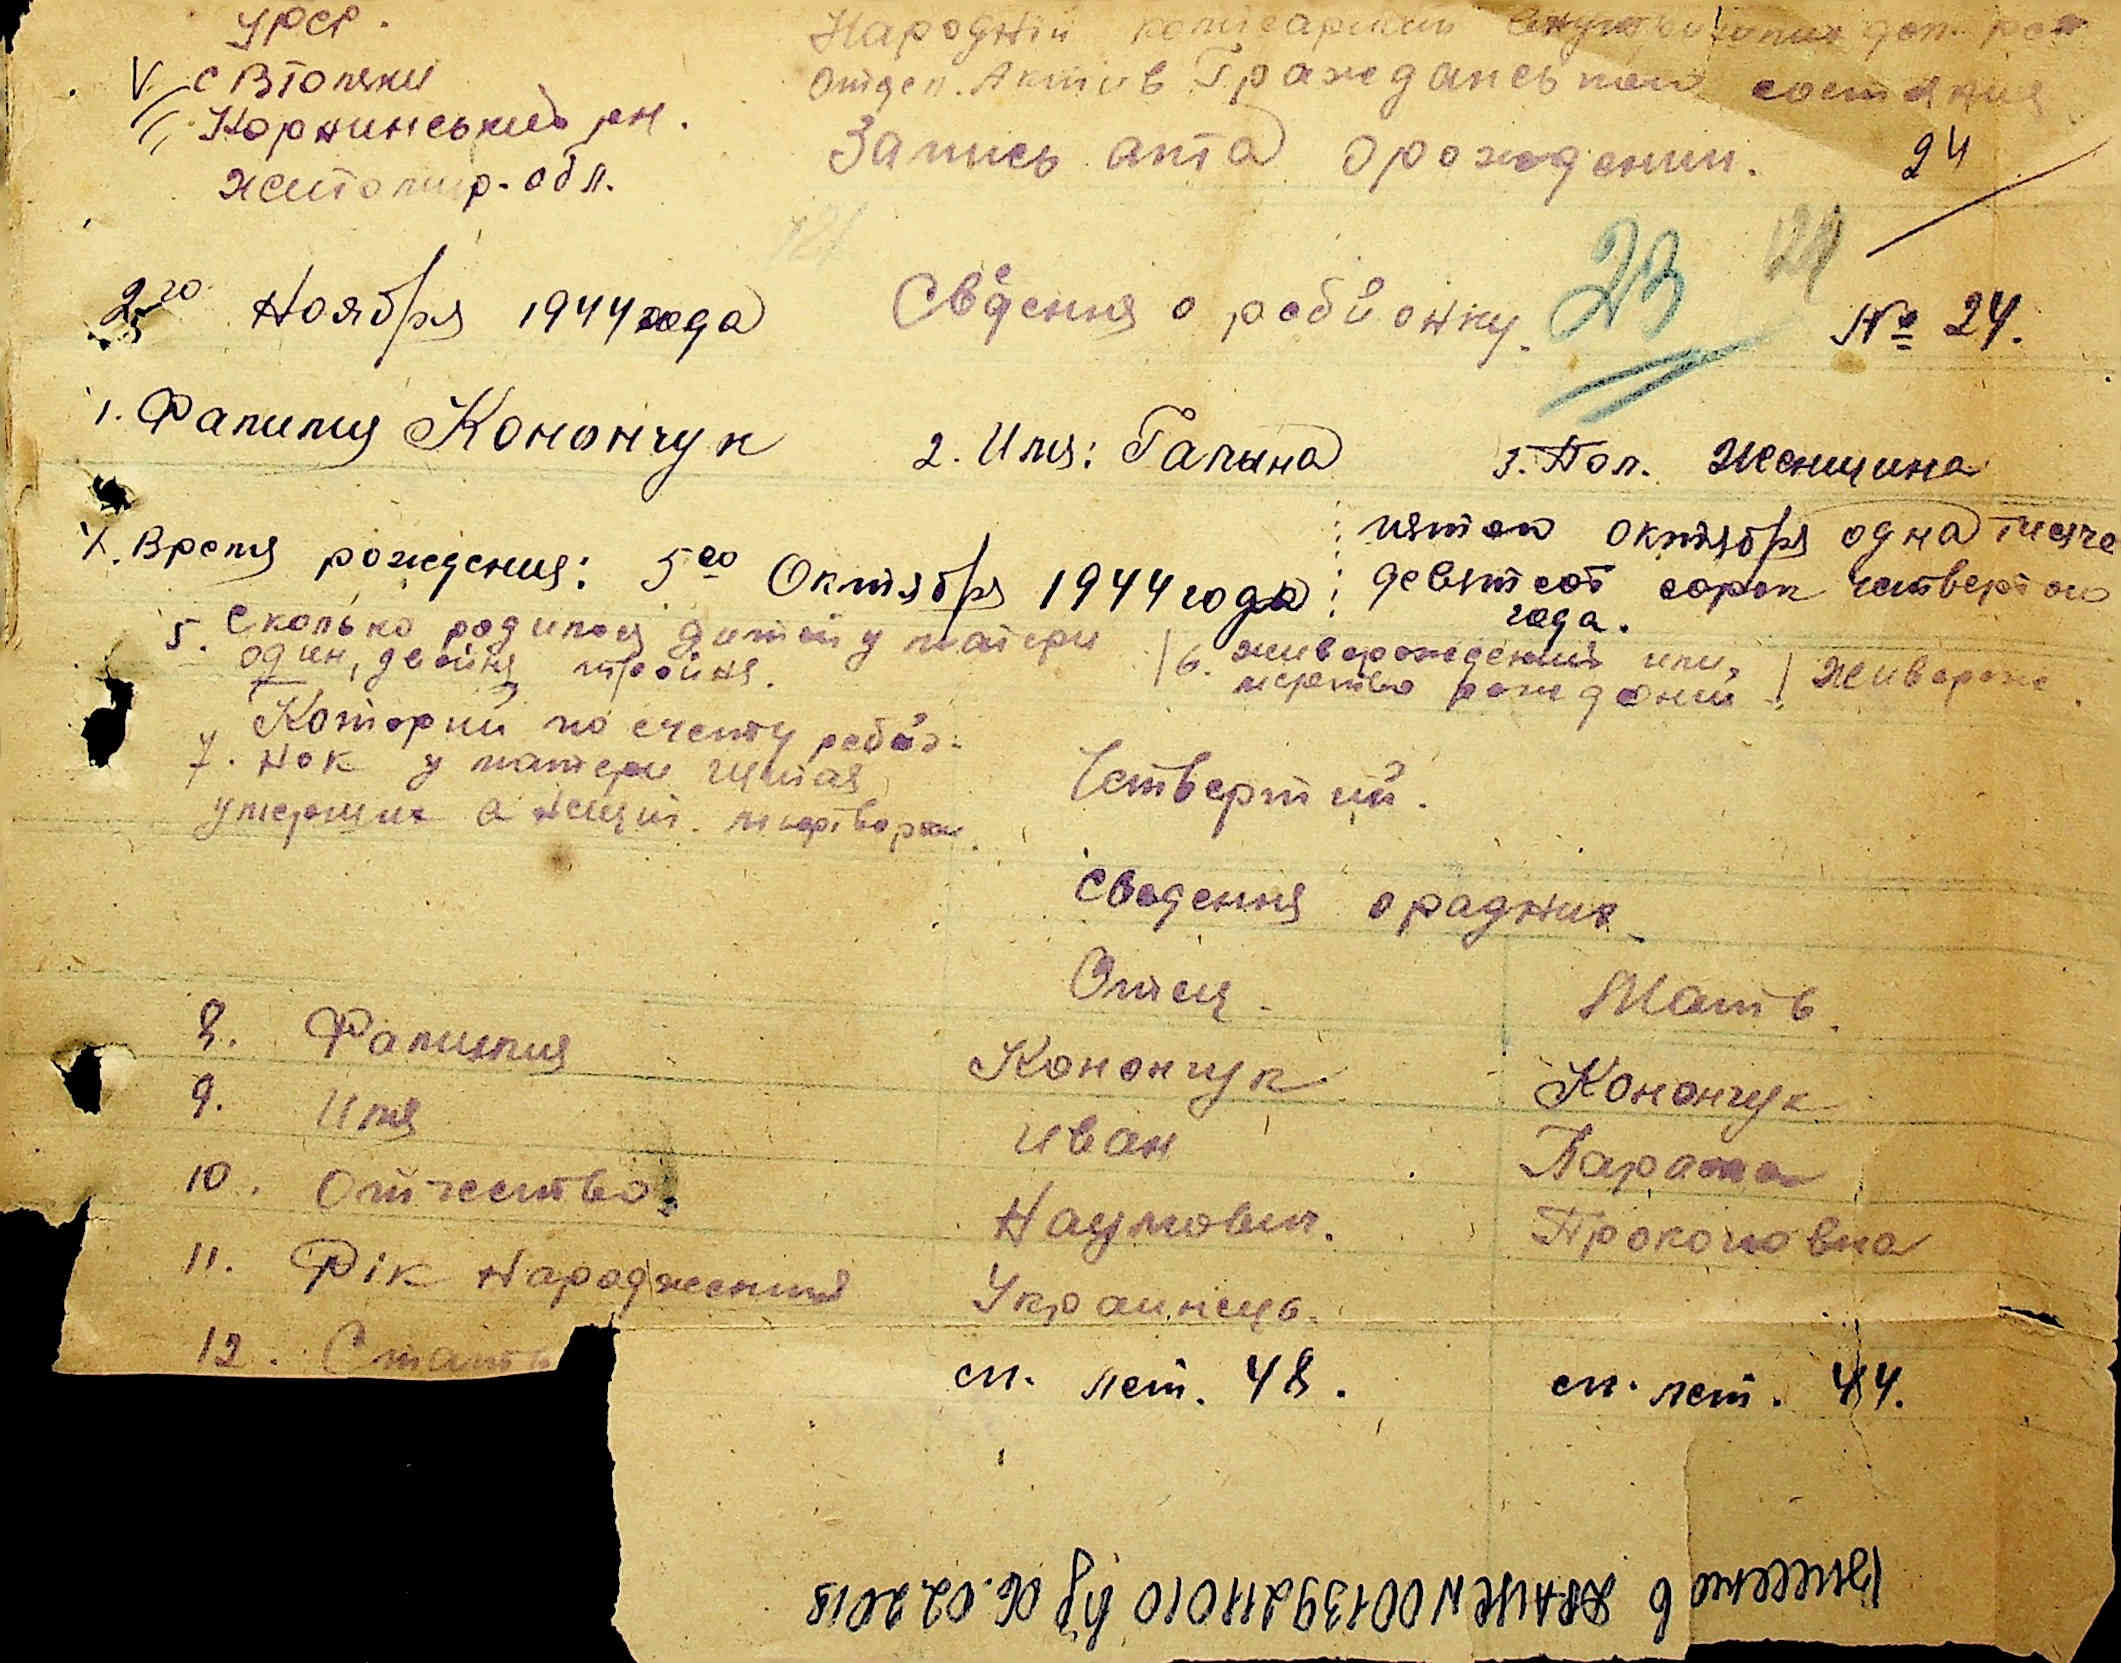 УРСР.
с Втопяки
Корнинський рн.
Житомир. обл.
Народній комісариат внутрішних
Отдел. Актив Гражданськой состания
Запись акта о рождении.
24
23
24
2го Ноября 1944 года
Свдення о рабйонку.
№ 24.
1. Фамилия Конончук
2. Имя: Галына
3. Пол. Женщина
4. Время рождения: 5го Октября 1944 года
пятого октября одна тисяче
девятсот сорок четвертого
года.
5. Сколько родилося дитей у матери
один, двойня тройня.
6. живорождений или,
мертво рождений
Живорож.
7. Которий по счету ребйо-
нок у матери щитая
умерших
Четвертий.
Сведення о радних
Отец.
Мать.
8. Фамилия
Конончук
Конончук
9. Имя
Иван
Параска
10. Отчество
Наумович.
Прокоповна
11. Рік Народження
Украинець.
12. Стать
сп. лет. 48.
сп. лет. 44.
Внесено в ДРАЦС N 00139211010 від 06.02.2018